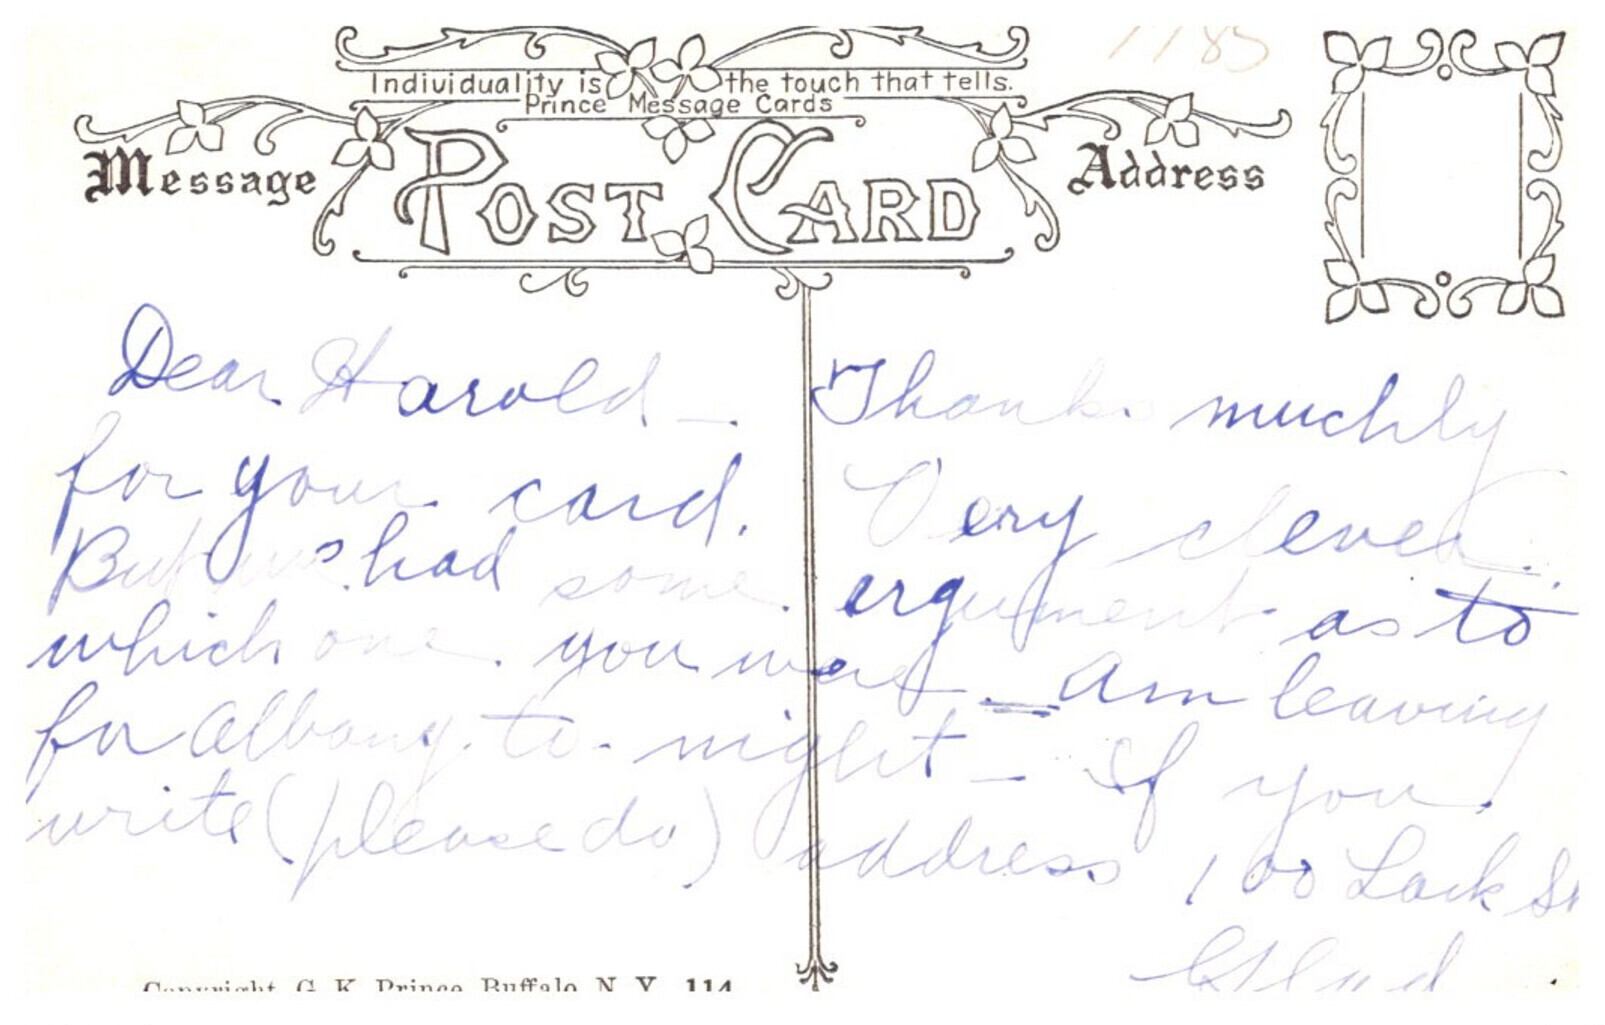 1185
Individuality is the touch that tells.
Prince Message Cards
Message
POST CARD
Address
Dear Harold – Thanks muchly
for your card. Very clever.
But we had some argument as to
which one you were. – Am leaving
for Albany to-night – If you
write (please do) address 100 Lark St
Glad
Copyright G. K. Prince Buffalo N. Y. 114